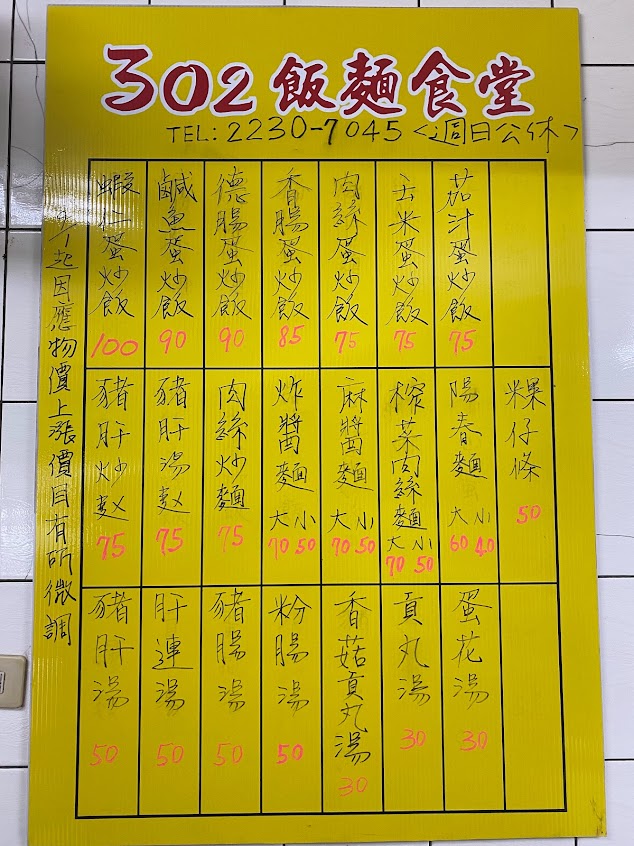 302飯麵食堂
TEL: 2230-7045 <週日公休>
茄汁蛋炒飯 75
玉米蛋炒飯 75
肉絲蛋炒飯 75
香腸蛋炒飯 85
德腸蛋炒飯 90
鹹魚蛋炒飯 90
蝦仁蛋炒飯 100
粿仔條 50
陽春麵 大60 小40
榨菜肉絲麵 大70 小50
麻醬麵 大70 小50
炸醬麵 大70 小50
肉絲炒麵 75
豬肝湯麵 75
豬肝炒麵 75
蛋花湯 30
貢丸湯 30
香菇貢丸湯 30
粉腸湯 50
豬腸湯 50
肝連湯 50
豬肝湯 50
起因應物價上漲價目有所微調